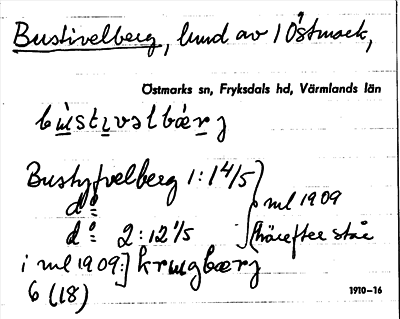 Bustivelberg, lund av 1 Östmark,
Östmarks sn, Fryksdals hd, Värmlands län
Bustyfvelberg 1:14/5
do
do 2:12 1/5
ml 1909
härefter stå
i ml 1909:] krɯgbærj
6 (18)
1910–16